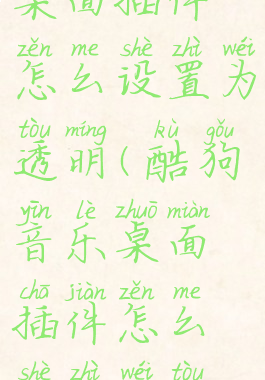 桌面插件
zěn me shè zhì wéi
怎么设置为
tòu míng kù gǒu
透明(酷狗
yīn lè zhuō miàn
音乐桌面
chā jiàn zěn me
插件怎么
shè zhì wéi tòu